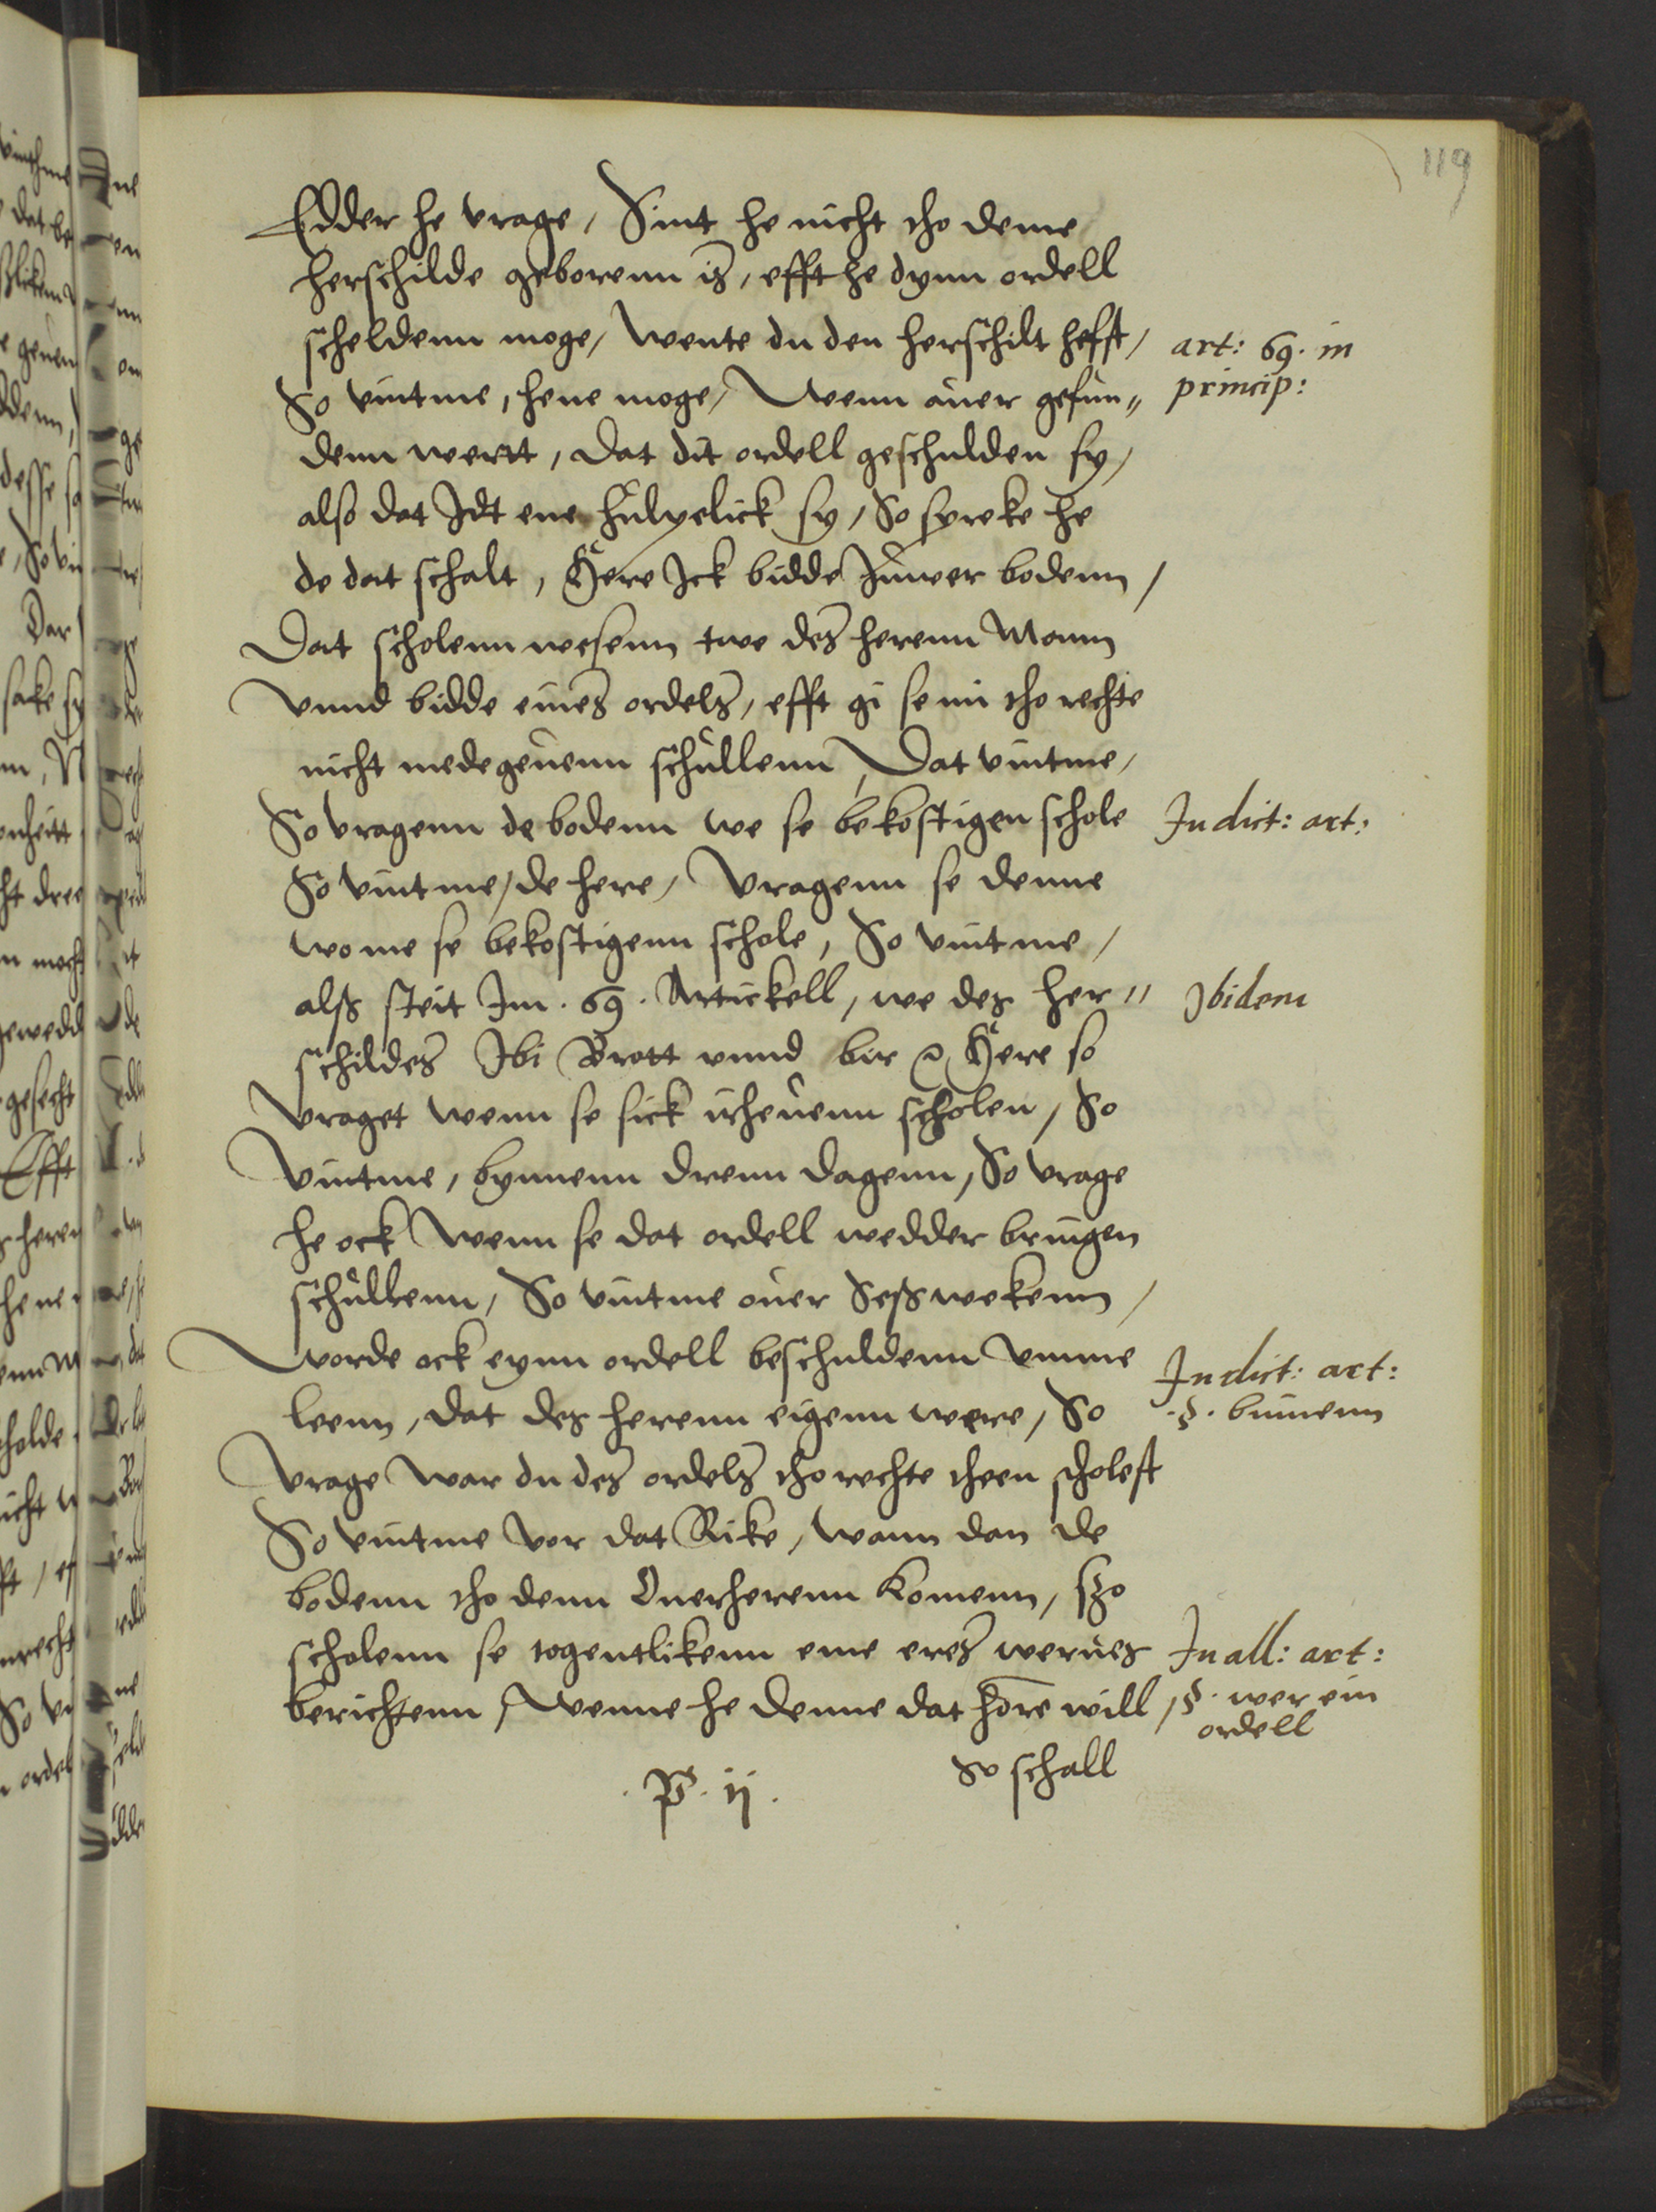 119
Edder he vrage, Sint he nicht tho deme
herschilde geborenn is, efft he dynn ordell
scheldenn moge, wente du den herschilt hefft,
So vintme, hene moge, Wenn auer gefun„
denn wertt, dat dit ordell geschulden sy,
also dat Idt ene hulpelick sy, So spreke he
de dat schalt, Here Ick bidde Juwer bodenn,
Dat scholenn wesenn twe des herenn Mann
Vnnd bidde eines ordels, efft gi se mi tho rechte
nicht medegeuenn schullenn, Dat vintme,
So vragenn de bodenn we se bekostigen schole
So vintme, de here, Vragenn se denne
wo me se bekostigenn schole, So vintme,
alß steit Im. 69. Artickell, we des her„
schildes Ibi Brott vnnd bir Here so
Vraget wenn se sick irheuenn scholen, So
Vintme, bynnenn drenn dagenn, So vrage
he ock wenn se dat ordell wedder bringen
schullenn, So vintme ouer Seß wekenn,
Worde ock eynn ordell beschuldenn vmme
leenn, dat des herenn eigenn were, So
Vrage war du des ordels tho rechte theen scholest
So vintme vor dat Rike, wann dan de
bodenn tho denn Ouerherenn komenn, szo
scholenn se togentlikenn eme eres werues
berichtenn, Wenne he denne dat hore will,
so schall
. P. ij.
art: 69. in
princip:
In dict: art:
Ibidem
In dict: art:
.§. binnenn
In all: art:
§. wer ein
ordell